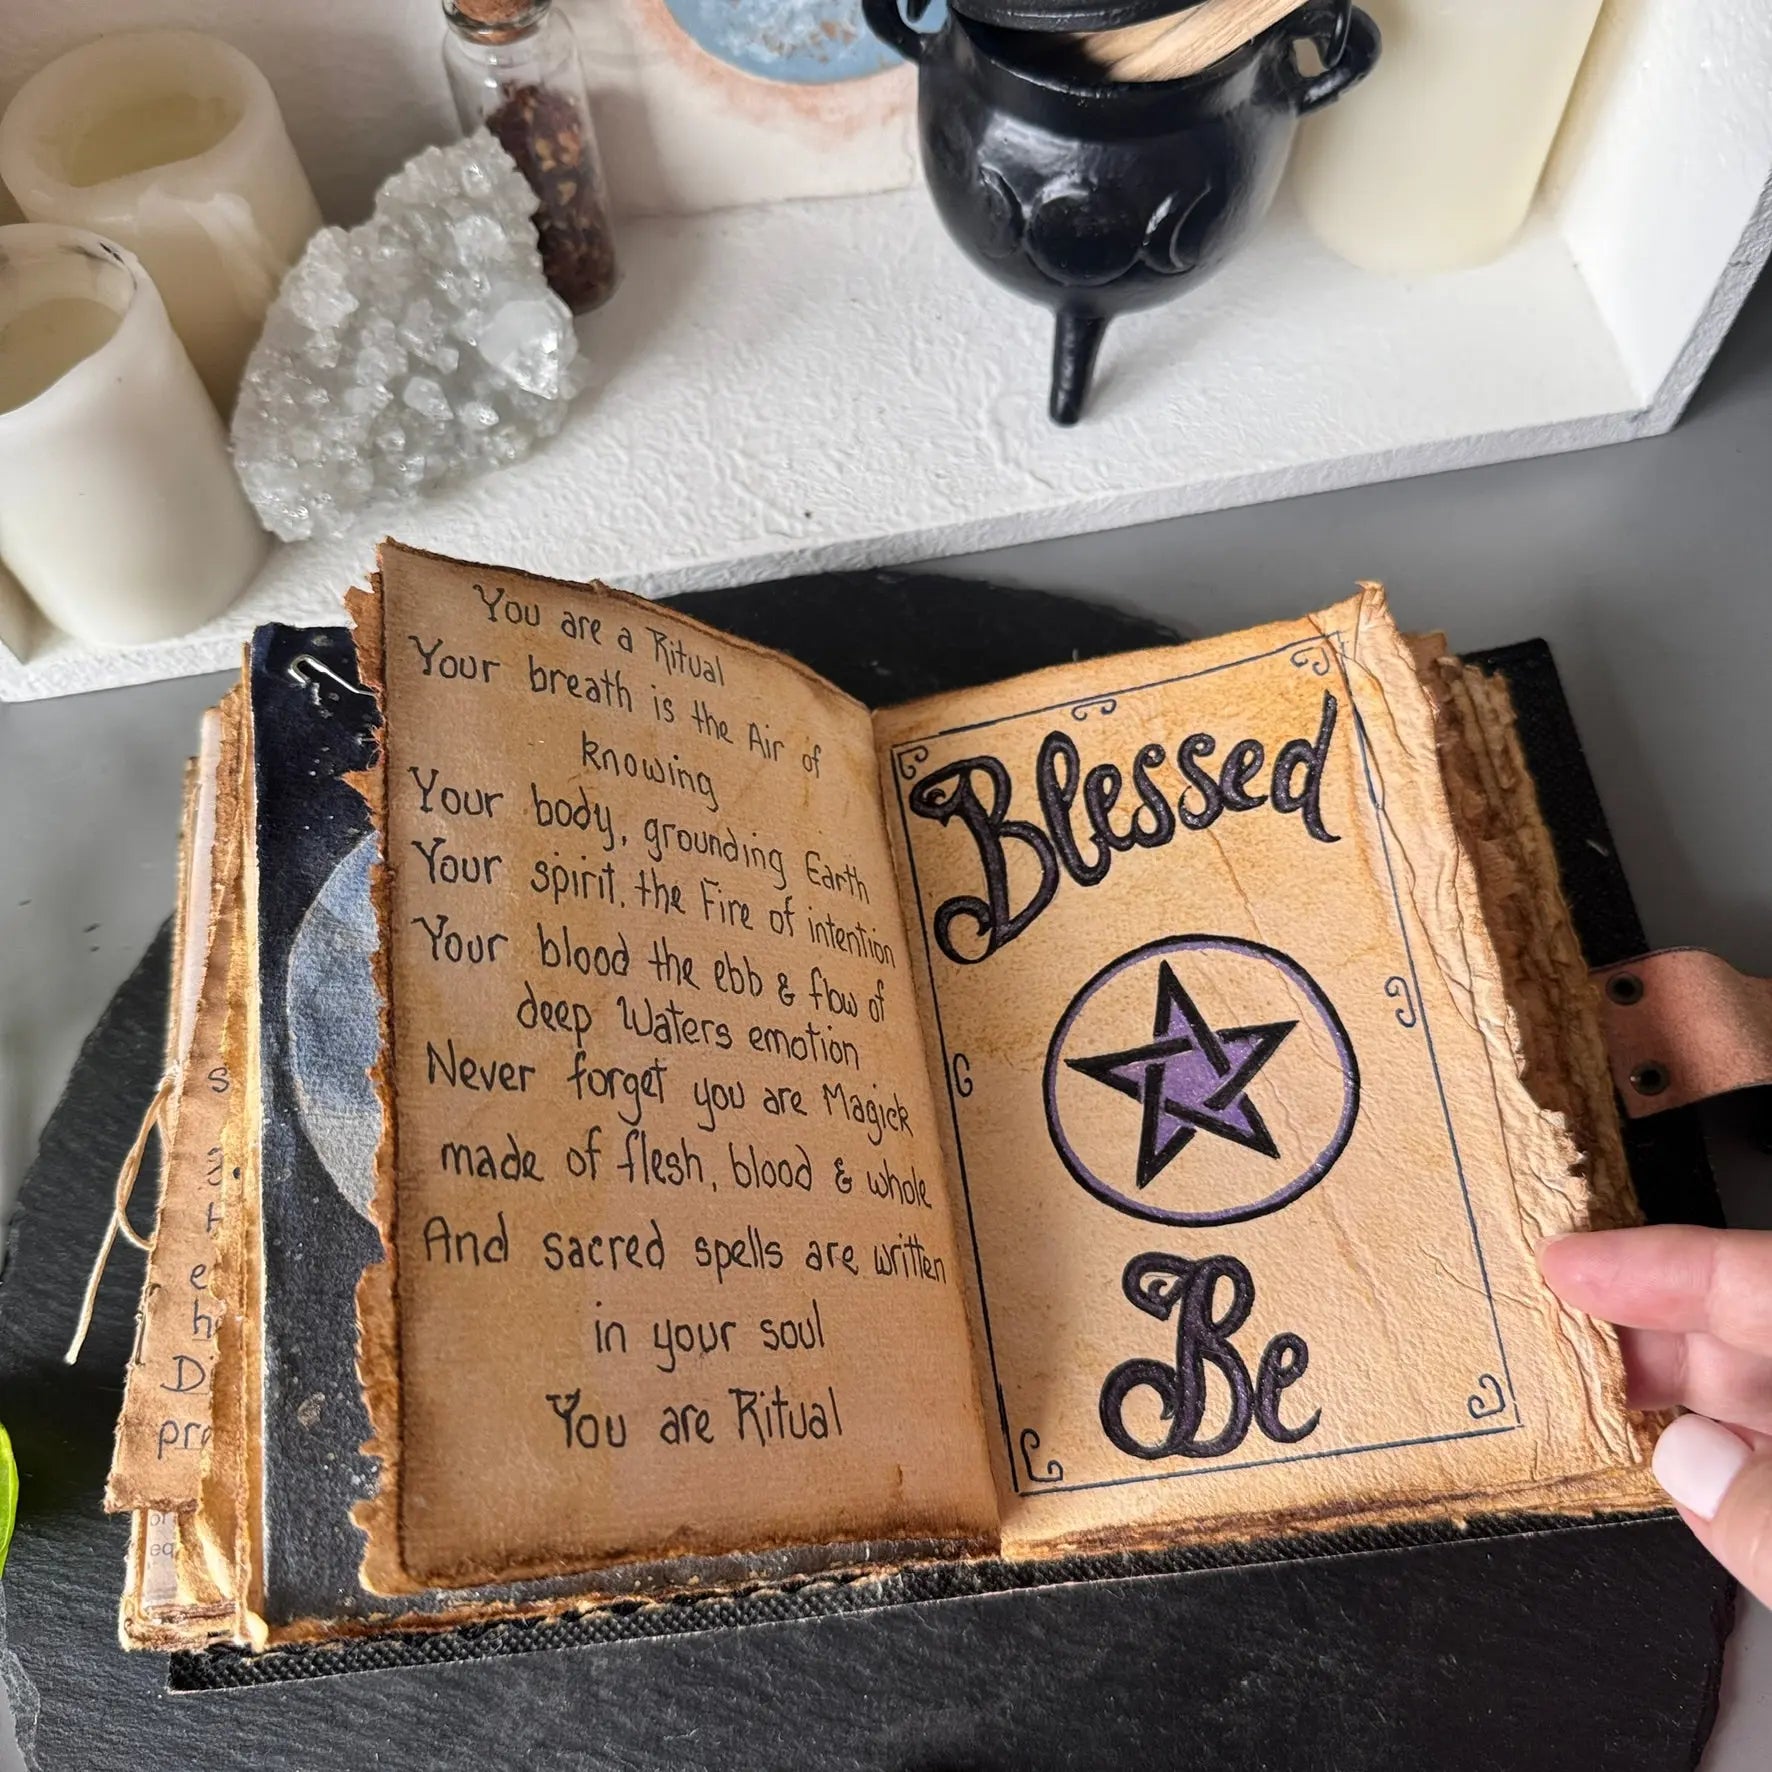 You are a Ritual
Your breath is the Air of
knowing
Your body, grounding Earth
Your spirit, the Fire of intention
Your blood the ebb & flow of
deep Waters emotion
Never forget you are Magick
made of flesh, blood & whole
And sacred spells are written
in your soul
You are Ritual
Blessed
Be